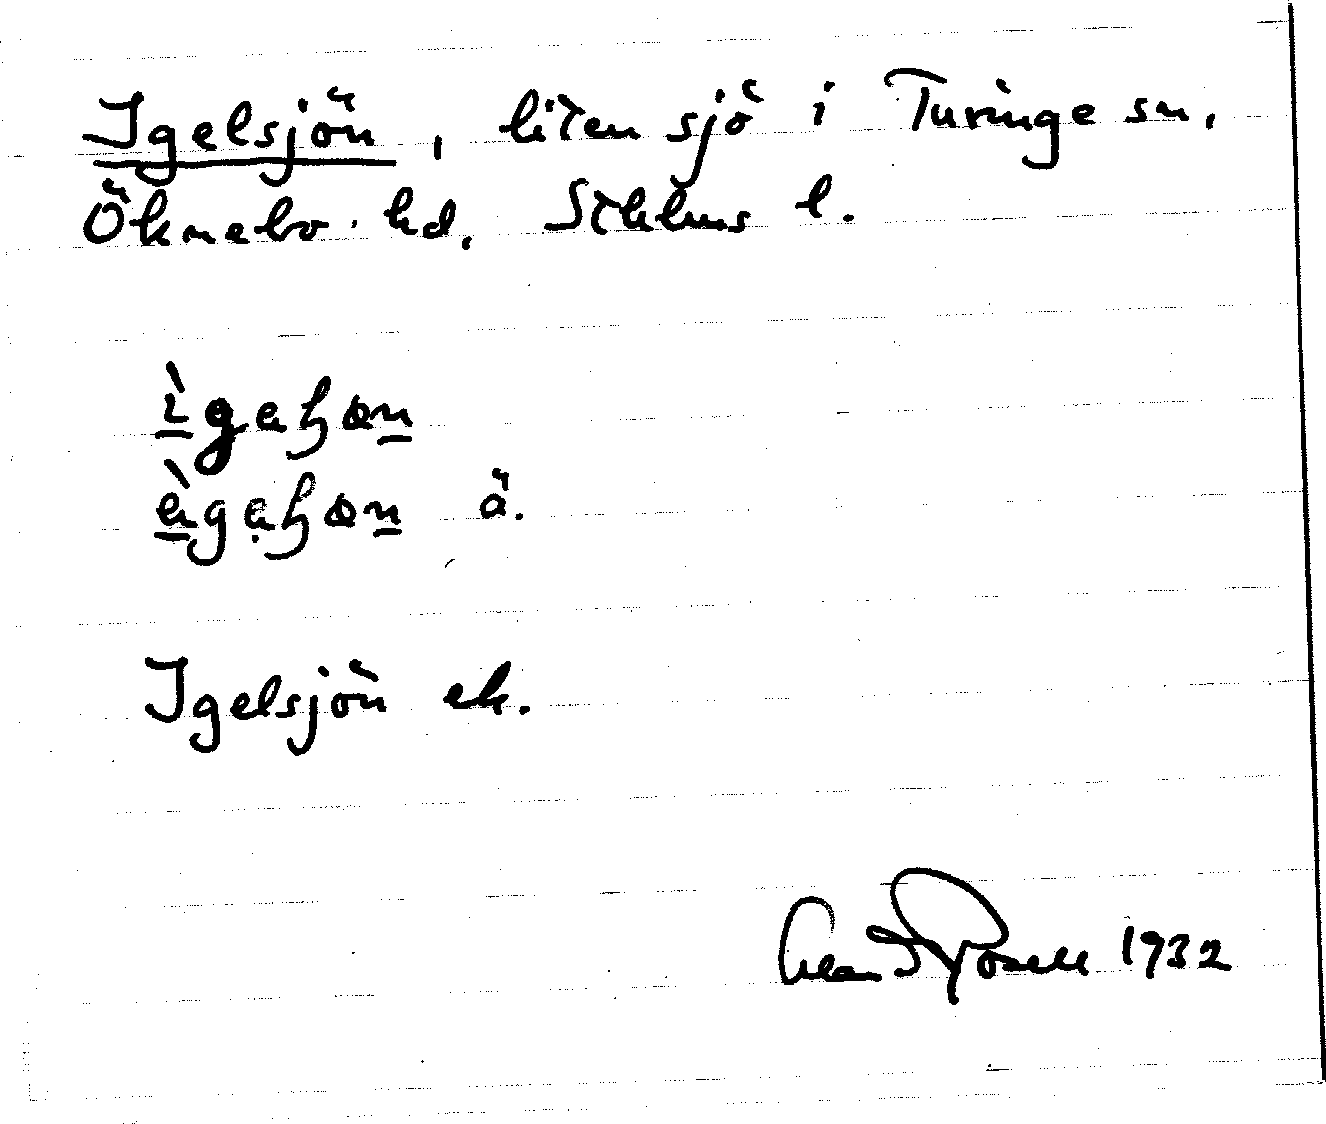 Igelsjön, liten sjö i Turinge sn,
Öknebo hd, Sthlms l.
ä.
Igelsjön ek.
1932